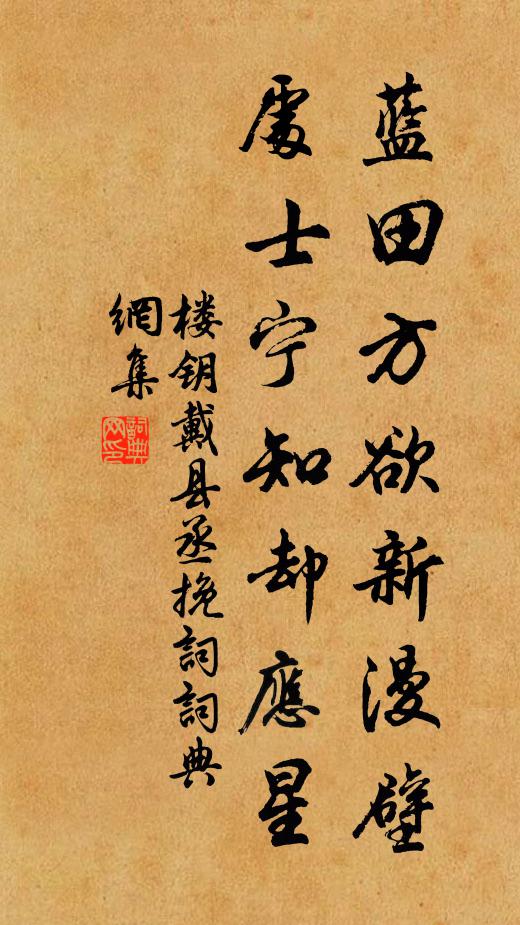 蓝田方欲新漫壁
處士宁知却應星
楼钥戴县丞挽詞詞典
網集
詞典网印